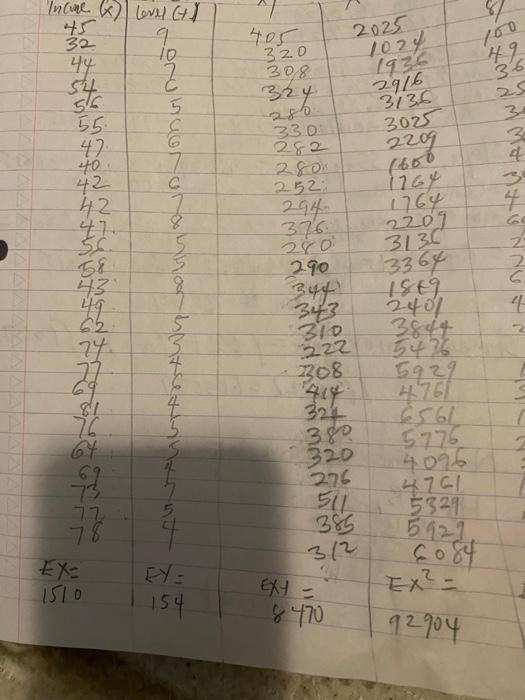 Income (X) Level (Y) 8
45 9 405 2025
32 10 320 1024 100
44 7 308 1936 49
54 6 324 2916 36
56 5 280 3136 25
55 6 330 3025
47 6 282 2209
40 7 280 1600
42 6 252 1764
42 7 294 1764
47 8 376 2209
56 5 280 3136
58 5 290 3364
43 8 344 1849
49 7 343 2401
62 5 310 3844
74 3 222 5476
77 4 308 5929
69 6 414 4761
81 4 324 6561
76 5 380 5776
64 5 320 4096
69 4 276 4761
73 7 511 5329
77 5 385 5929
78 4 312 6084
EX= EY= EXY = EX² =
1510 154 8470 92904